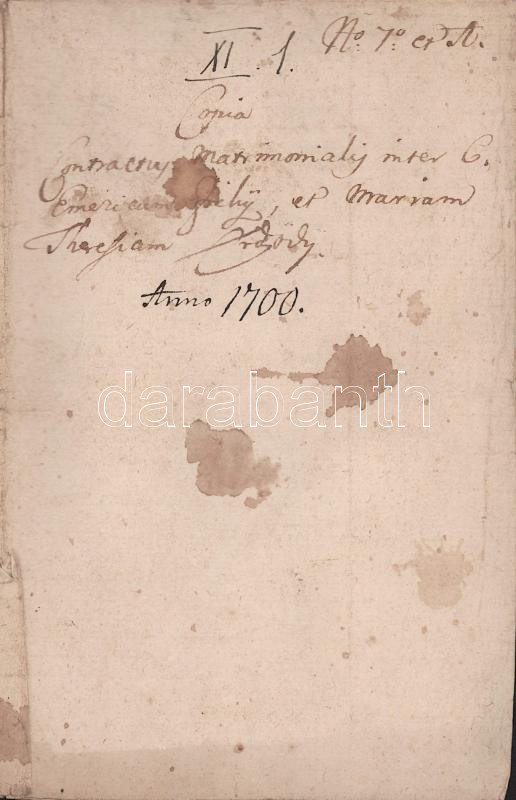 XI. 1. No: 7o et A.
Copia
Contractus Matrimonialis inter C.
Emericum Zichy, et Mariam
Theresiam Erdődy.
Anno 1700.
darabanth